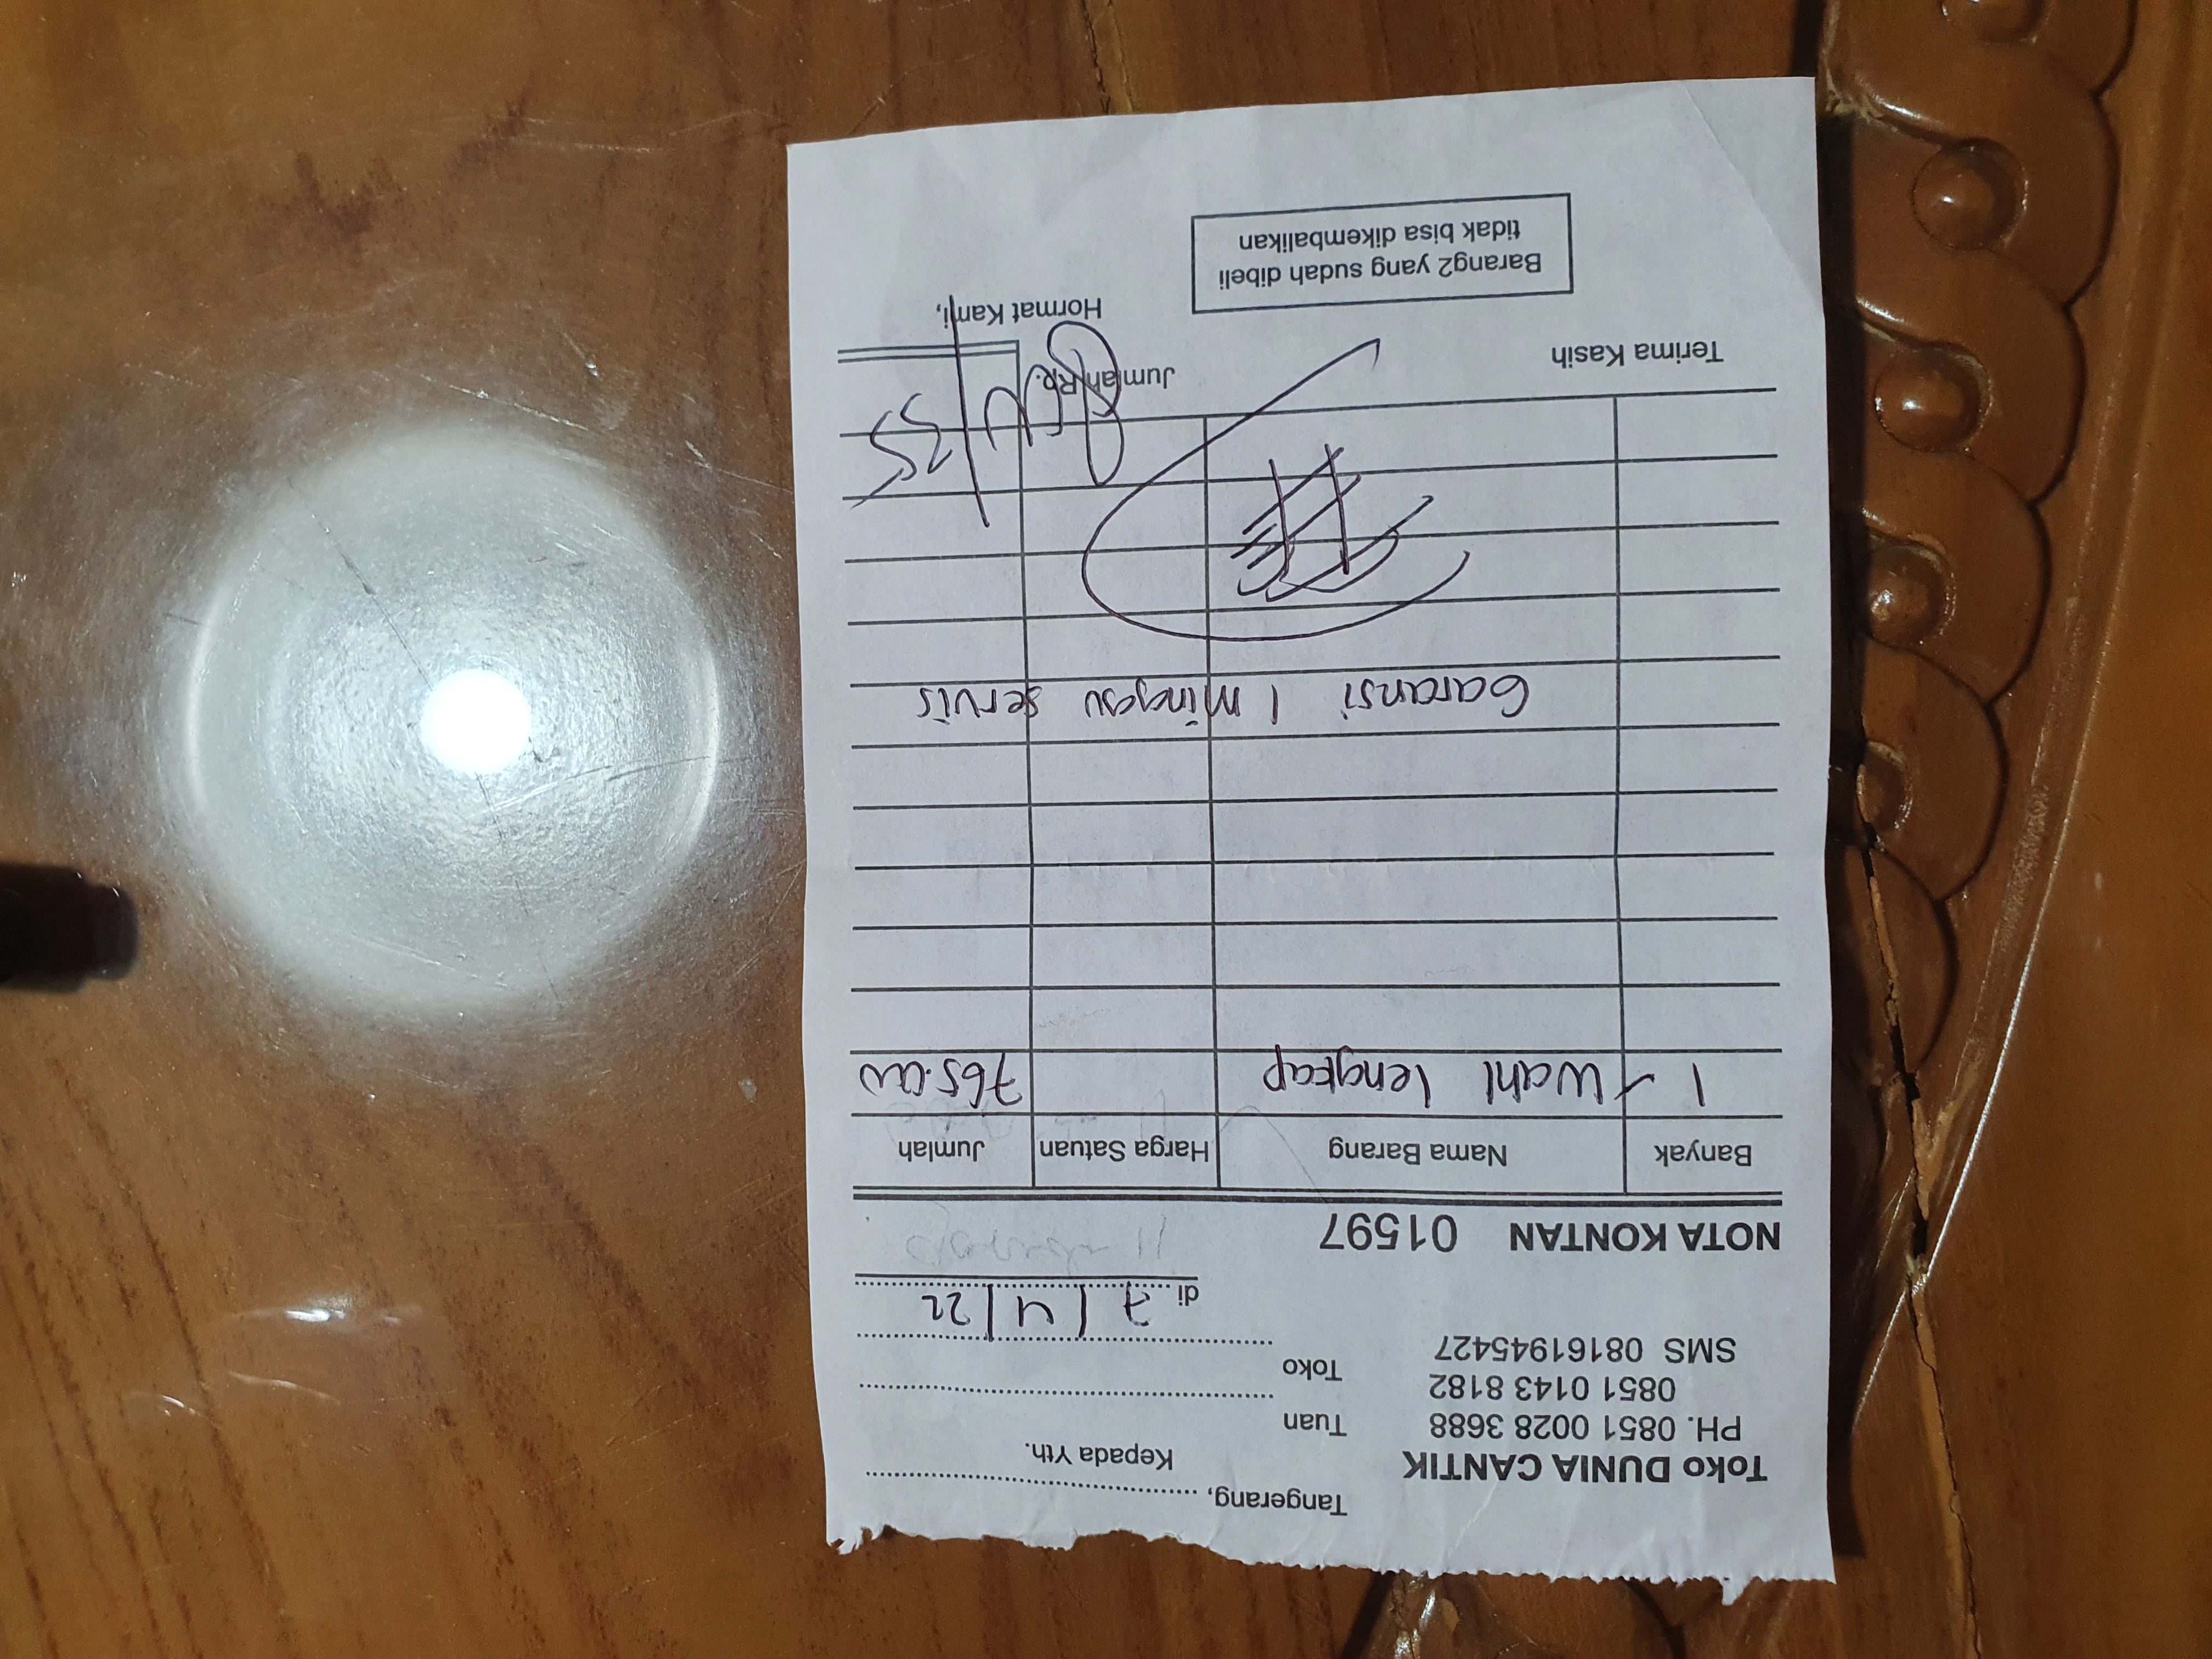 Toko DUNIA CANTIK
PH. 0851 0028 3688
0851 0143 8182
SMS 08161945427
Tangerang, ....................
Kepada Yth.
Tuan ....................
Toko ....................
di 7/4/22
NOTA KONTAN 01597
Banyak Nama Barang Harga Satuan Jumlah
1 Wahl lengkap 765.000
Garansi 1 minggu servis
Jumlah Rp.
Terima Kasih
Hormat Kami,
Barang2 yang sudah dibeli
tidak bisa dikembalikan